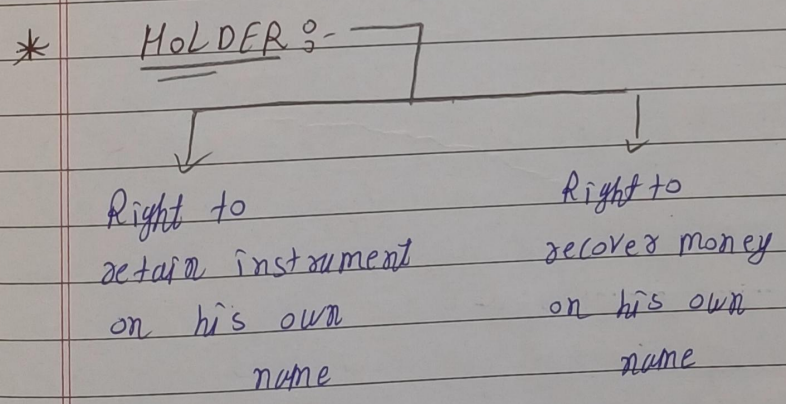 * HOLDER :-
Right to
retain instrument
on his own
name
Right to
recover money
on his own
name